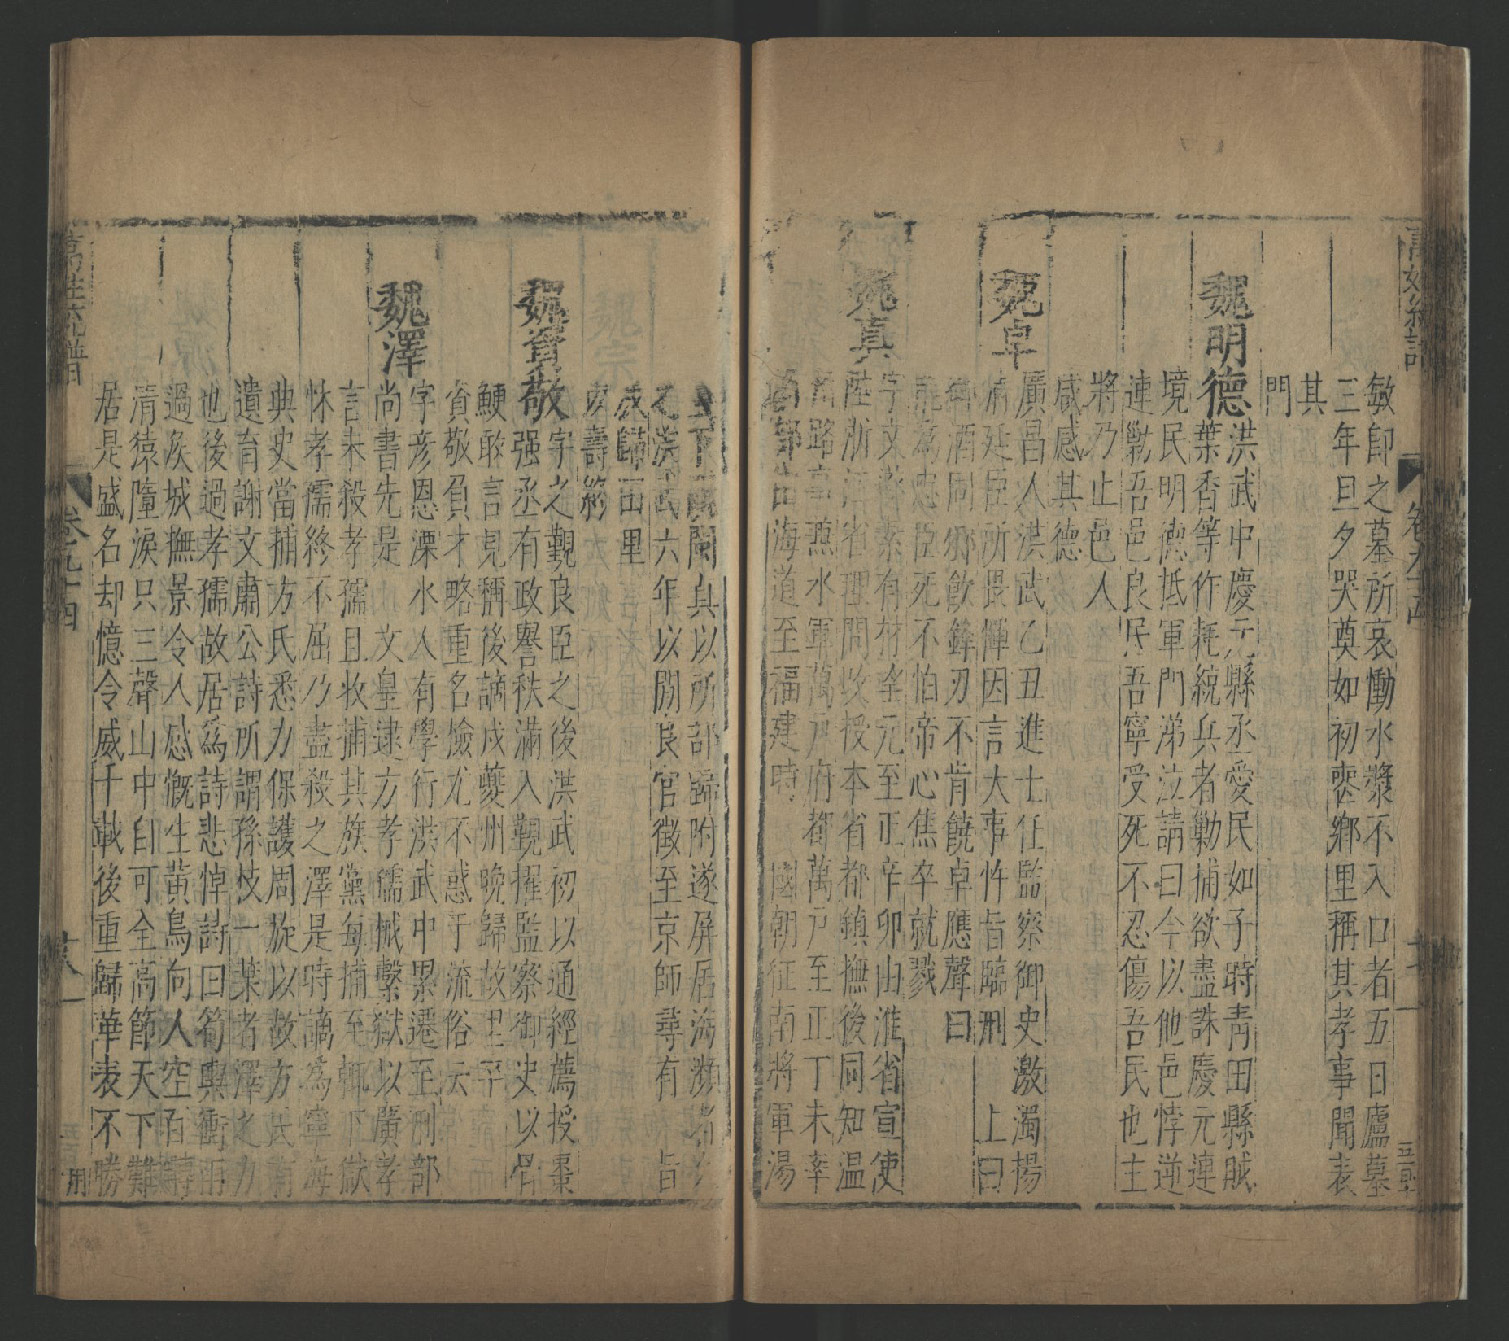 敏卽之墓所哀慟水漿不入口者五日廬墓
三年旦夕哭奠如初喪鄉里稱其孝事聞表
其
門
魏明德洪武中慶元縣丞愛民如子時青田縣賊
葉香等作耗統兵者勦捕欲盡誅慶元連
境民明德抵軍門涕泣請曰今以他邑悖逆
連勦吾邑良民吾寧受死不忍傷吾民也主
將乃止邑人
感感其德
魏卓
廣昌人洪武乙丑進士任監察御史激濁揚
清廷臣所畏憚因言大事忤旨臨刑 上曰
鋒刃不肯饒卓應聲曰
死不怕帝心焦卒就戮
魏真
字文 素有材 元至正辛卯由淮省宣使
陞浙 省理問改授本省都鎮撫後同知温
路事 水軍萬戶府都萬戶至正丁未率
海道至福建時 國朝征南將軍湯
兵以所部歸附遂屏居海瀕
洪武六年以閒良官徵至京師尋有 旨
歸田里
以壽終
魏資敬
字之觀良臣之後洪武初以通經薦授棗
强丞有政譽秩滿入覲擢監察御史以骨
鯁敢言見稱後謫戍夔州晚歸故里平
資敬負才略重名檢尤不惑于流俗云
魏澤
字彦恩溧水人有學行洪武中累遷至刑部
尚書先是 文皇逮方孝儒械繫獄以廣孝
言未殺孝孺且收捕其族黨每捕至輒下獄
怵孝儒終不屈乃盡殺之澤是時謫爲寧海
典史當捕方氏悉力保護周旋以故方氏
遺育謝文肅公詩所謂孫枝一葉者澤之力
也後過孝孺故居爲詩悲悼詩曰筍輿衝雨
過侯城撫景令人感慨生黃鳥向人空百囀
清猿墮淚只三聲山中自可全高節天下難
居是盛名却憶令威千載後重歸華表不勝
卷九十四